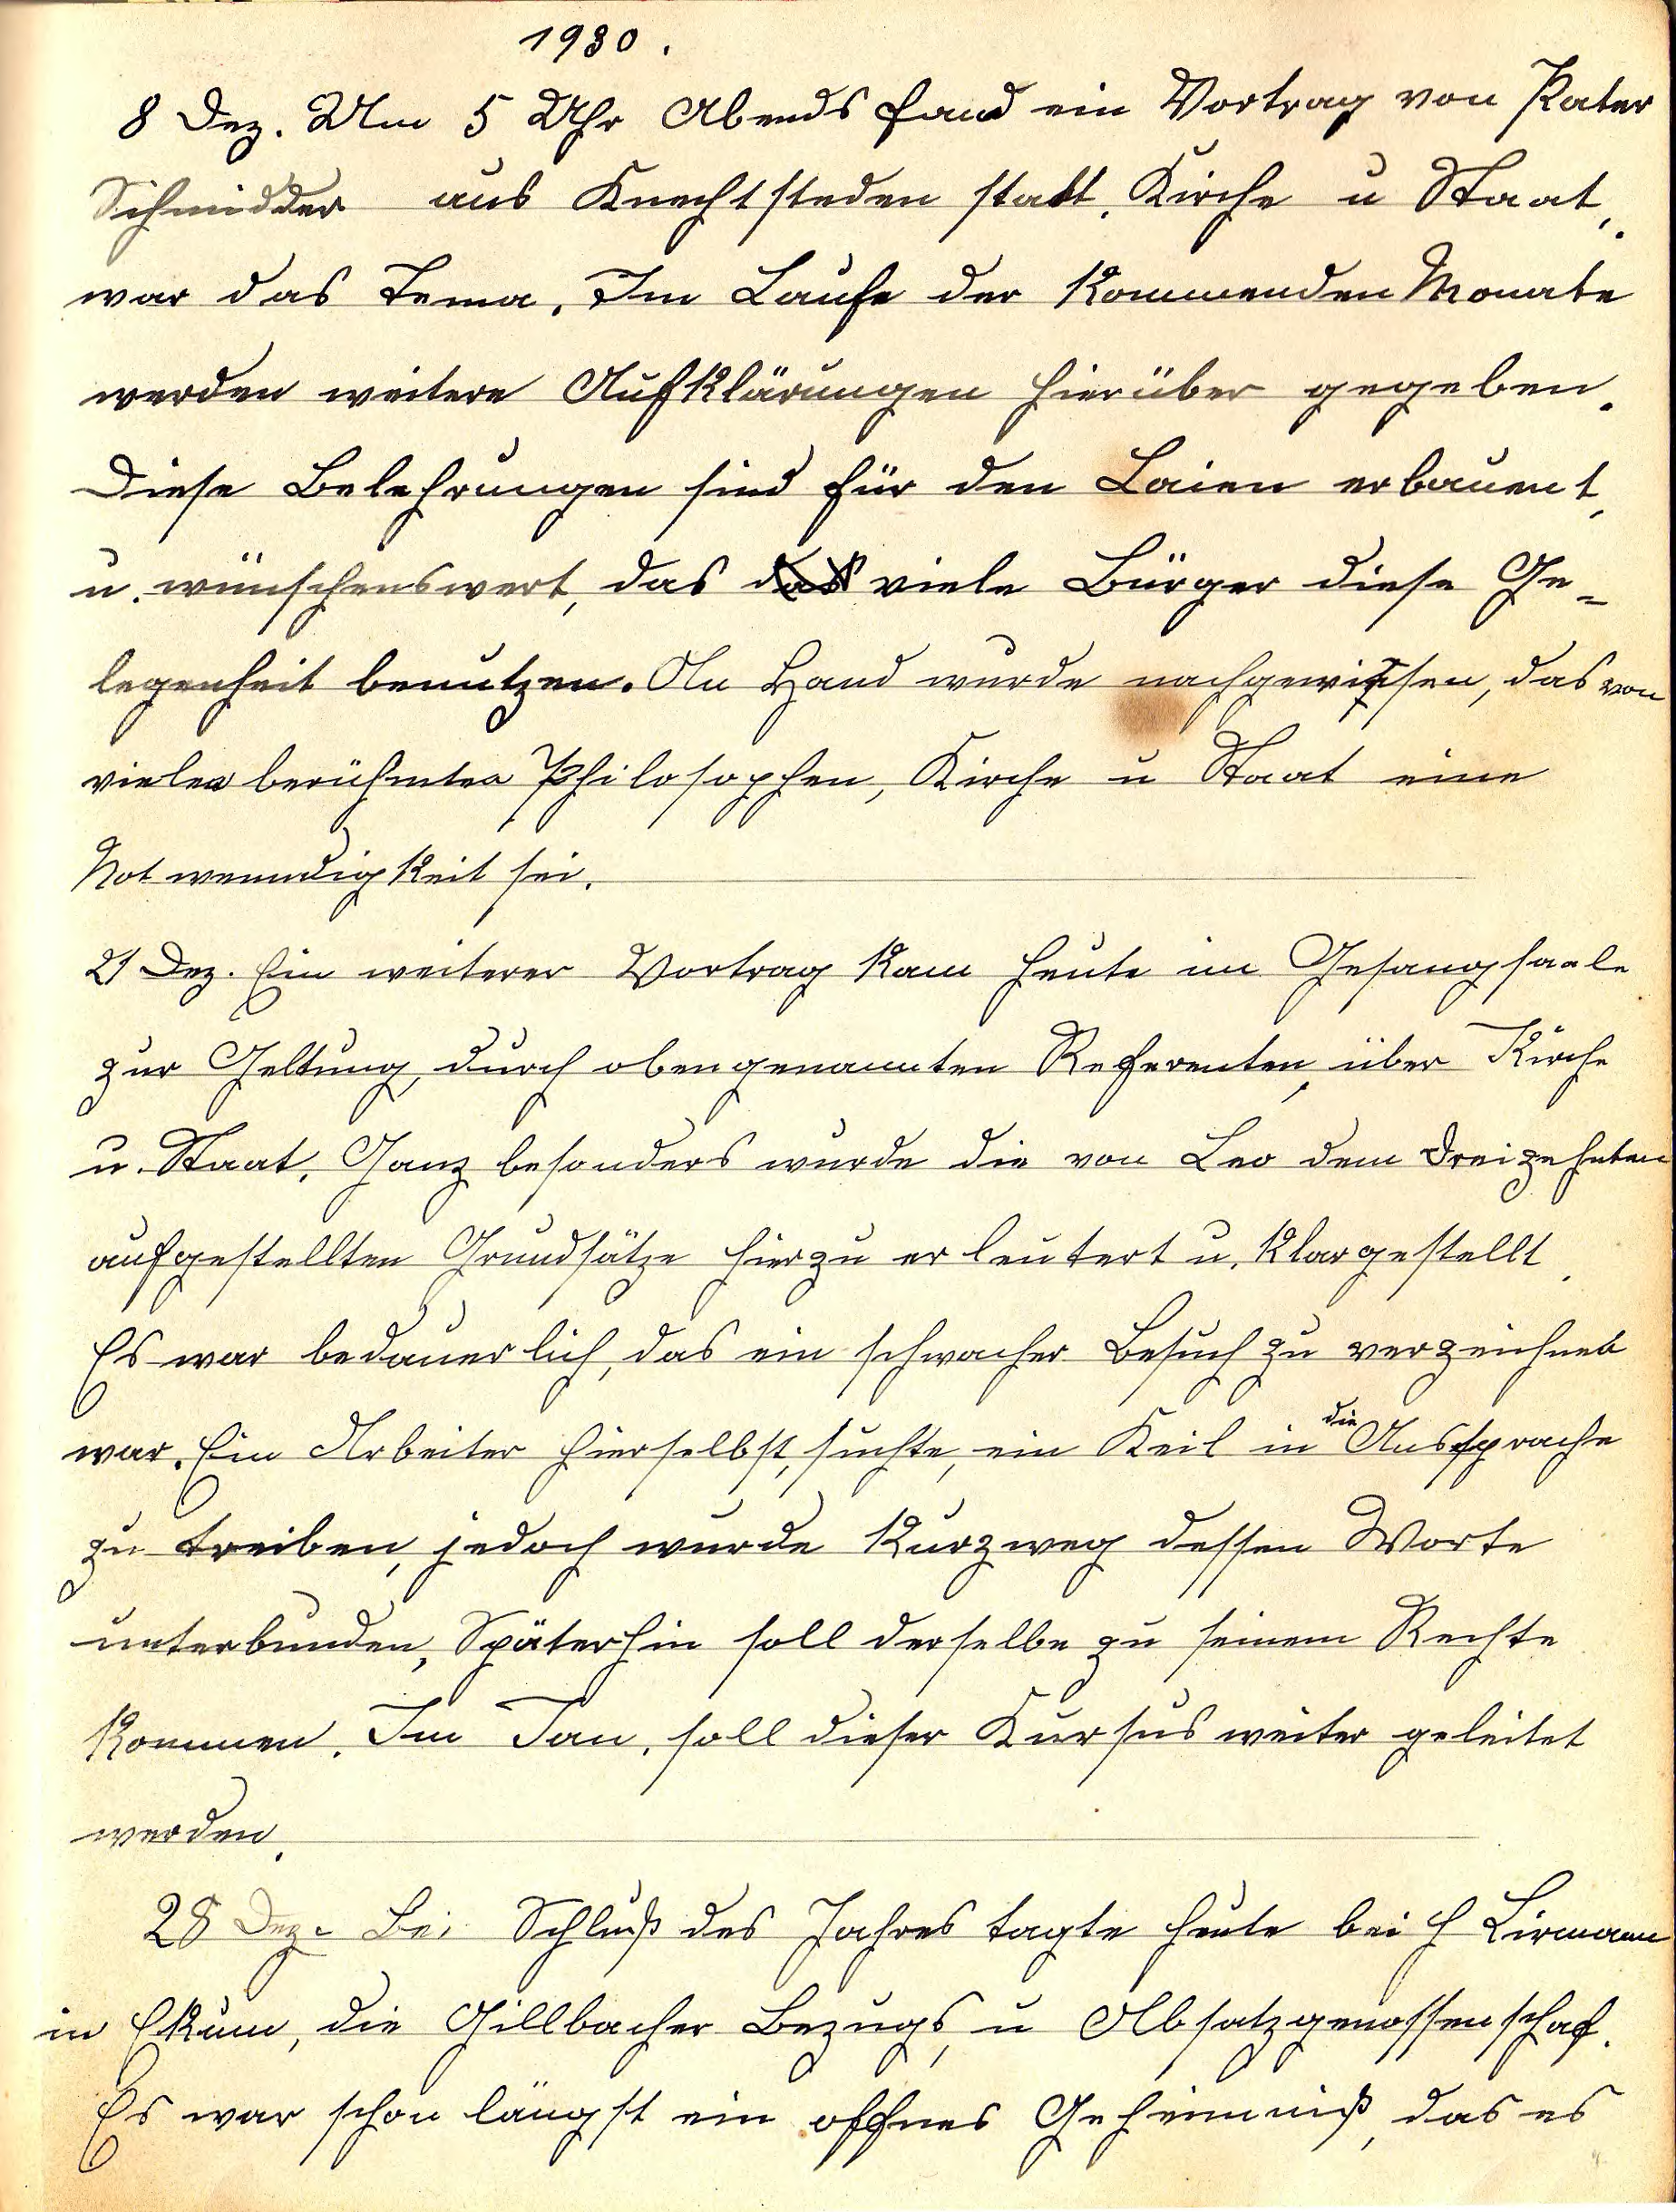 1930.
8 Dez. Um 5 Uhr Abends fand ein Vortrag von Pater
Schmidder aus Knechtsteden statt. Kirche u Staat,.
war das Tema. Im Laufe der Kommenden Monate
werden weitere Aufklärungen hierüber gegeben.
Diese Belehrungen sind für den Laien erbauent,
u. wünschenswert, das das viele Bürger diese Ge=
legenheit benutzen. An Hand wurde nachgewissen, das von
vielen berühmten Philosophen, Kirche u Staat eine
Notwenndigkeit sei.
21 Dez. Ein weiterer Vortrag kam heute im Gesangsaale
zur Geltung, durch obengenannten Referenten, über Kirche
u. Staat. Ganz besonders wurde die von Leo dem Dreizehnten
aufgestellten Grundsätze hierzu erleutert u. klargestellt.
Es war bedauerlich, das ein schwacher Besuch zu verzeichnen
war. Ein Arbeiter hierselbst, suchte, ein Keil in die Aussprache
zu treiben, jedoch wurde kurzweg dessen Worte
unterbunden, Späterhin soll derselbe zu seinem Rechte
kommen. Im Jan. soll dieser Kursus weiter geleitet
werden.
28 Dez. Bei Schluß des Jahres tagte heute bei H Lirmann
in Ekum, die Gillbacher Bezugs, u Absatzgenossenschaf.
Es war schon längst ein offnes Geheimniß, das es